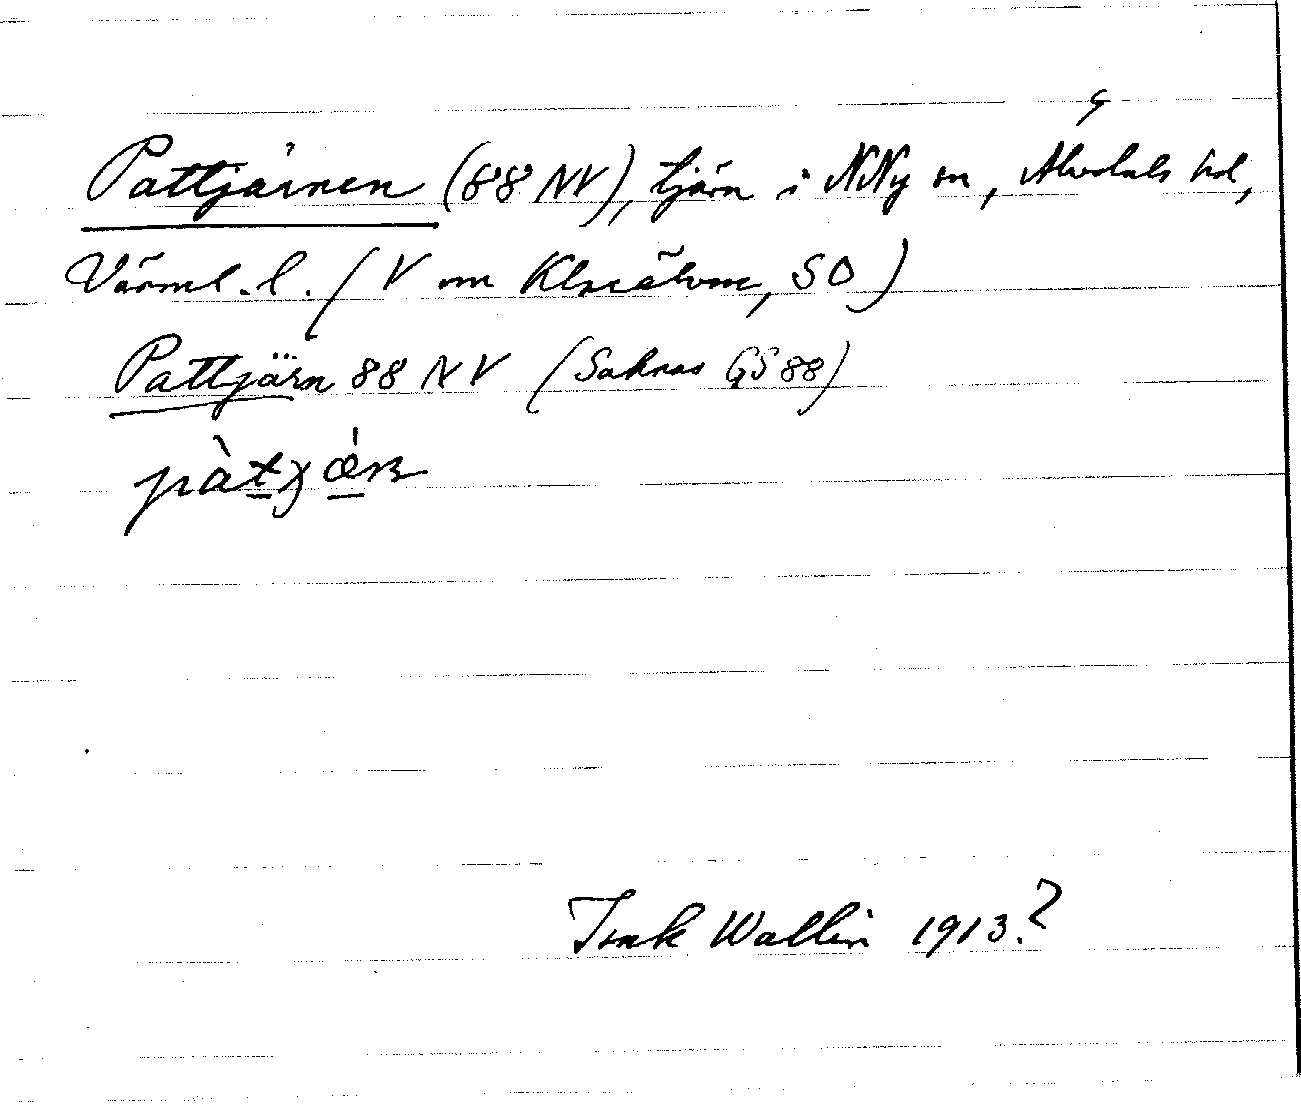 Pattjärnen (88 NV), tjärn i N Ny sn, Älvdals hd,
Värml. l. (V om Klarälven, SO)
Pattjärn 88 NV (Saknas GS 88)
Isak Wallin 1913?